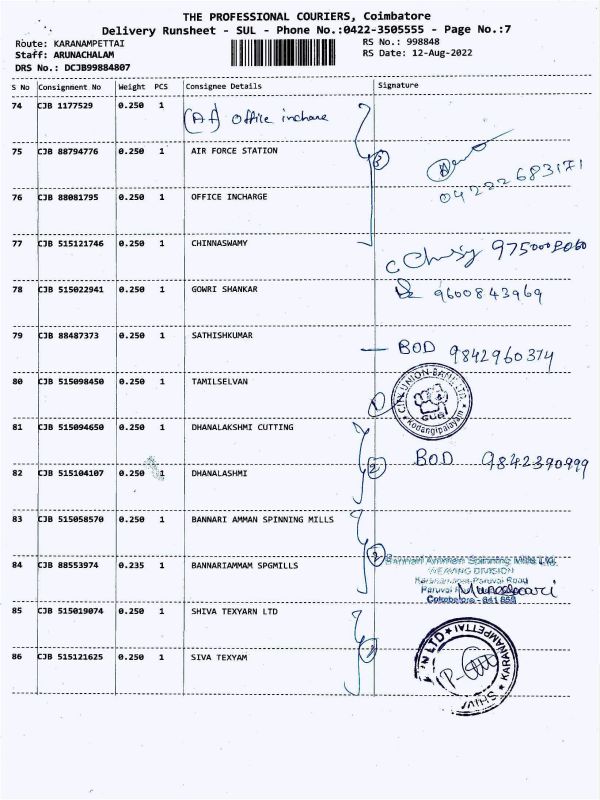 THE PROFESSIONAL COURIERS, Coimbatore
Delivery Runsheet - SUL - Phone No.:0422-3505555 - Page No.:7
Route: KARANAMPETTAI RS No.: 998848
Staff: ARUNACHALAM RS Date: 12-Aug-2022
DRS No.: DCJB99884807
S No Consignment No Weight PCS Consignee Details Signature
74 CJB 1177529 0.250 1 (Af) office inchare
75 CJB 88794776 0.250 1 AIR FORCE STATION 3
04222683171
76 CJB 88081795 0.250 1 OFFICE INCHARGE
77 CJB 515121746 0.250 1 CHINNASWAMY
78 CJB 515022941 0.250 1 GOWRI SHANKAR 9600843969
79 CJB 88487373 0.250 1 SATHISHKUMAR — BOD 9842960374
80 CJB 515098450 0.250 1 TAMILSELVAN
CITY UNION BANK LTD
CUB
Kodangipalayam
81 CJB 515094650 0.250 1 DHANALAKSHMI CUTTING
BOD 9842390999
82 CJB 515104107 0.250 1 DHANALASHMI 2
83 CJB 515058570 0.250 1 BANNARI AMMAN SPINNING MILLS
84 CJB 88553974 0.235 1 BANNARIAMMAM SPGMILLS 2
Bannari Amman Spinning Mills Ltd.
WEAVING DIVISION
Karanampet-Paruvai Road
Paruvai
Coimbatore - 641 658
85 CJB 515019074 0.250 1 SHIVA TEXYARN LTD
86 CJB 515121625 0.250 1 SIVA TEXYAM
N LTD ★ KARANAMPETTAI ★ SHIV